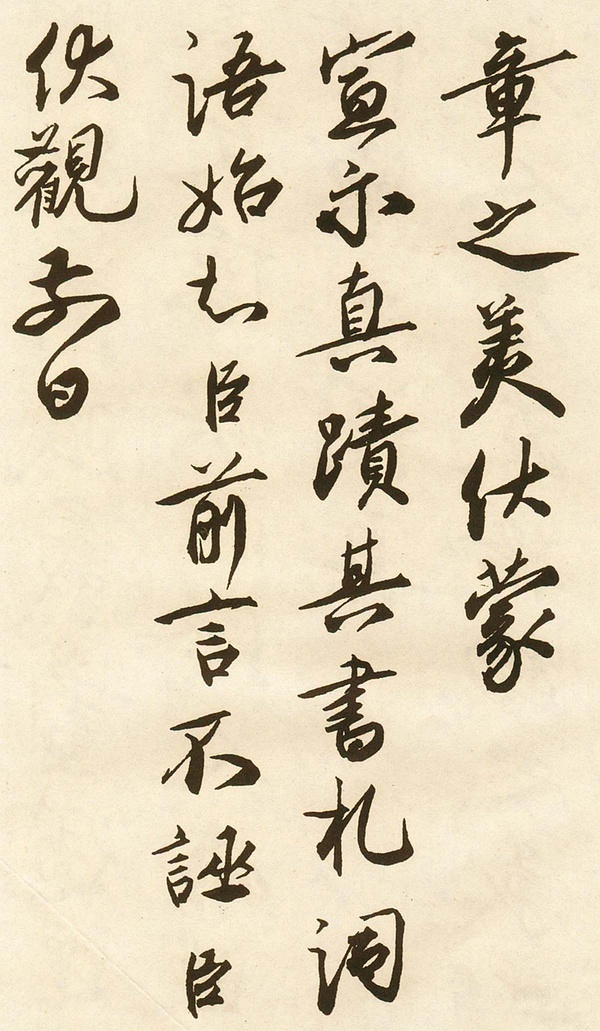 章之美伏蒙
宣示真蹟其書札詞
語始知臣前言不誣臣
伏觀前日